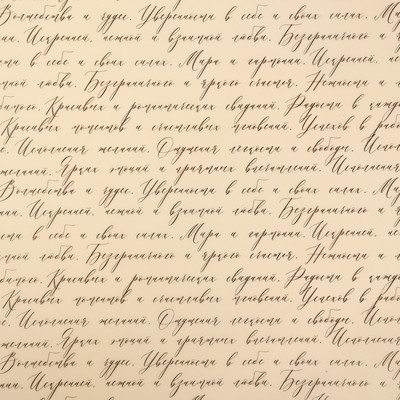 Волшебства и чудес. Уверенности в себе и своих силах. Ми
ания. Искренней, нежной и взаимной любви. Безграничного и
сти в себе и своих силах. Мира и гармонии. Искренней,
нной любви. Безграничного и яркого счастья. Нежности и
бимого. Красивых и романтических свиданий. Радости в кажд
Красивых комплиментов и счастливых мгновений. Успехов в раб
с. Исполнения желаний. Ощущения легкости и свободы. Испо
желаний. Ярких эмоций и приятных впечатлений. Исполнения
Волшебства и чудес. Уверенности в себе и своих силах. Ми
ания. Искренней, нежной и взаимной любви. Безграничного и ч
сти в себе и своих силах. Мира и гармонии. Искренней, не
нной любви. Безграничного и яркого счастья. Нежности и
бимого. Красивых и романтических свиданий. Радости в кажд
Красивых и счастливых мгновений. Успехов в раб
с. Исполнения желаний. Ощущения легкости и свободы. Испол
желаний. Ярких эмоций и приятных впечатлений. Исполнения
Волшебства и чудес. Уверенности в себе и своих силах. Ми
ания. Искренней, нежной и взаимной любви. Безграничного и